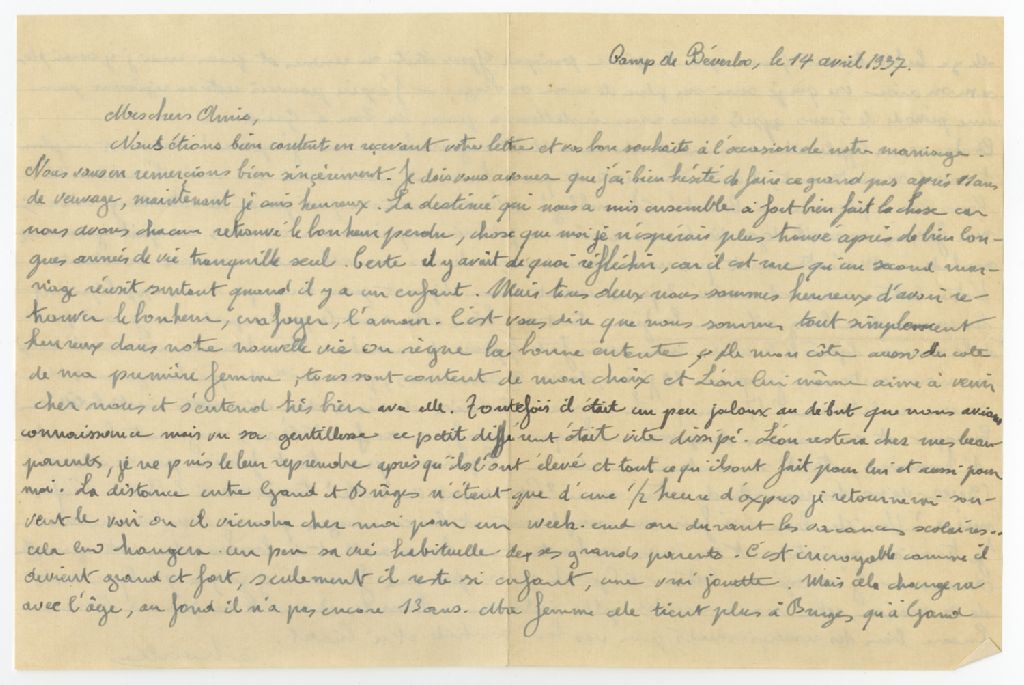 Camp de Béverloo, le 14 avril 1937.
Mes chers Amis,
Nous étions bien content en reçevant votre lettre et vos bon souhaits à l'occasion de notre mariage.
Nous vous en remerçions bien sinçèrement. Je dois vous avouer que j'ai bien hésité de faire ce grand pas après 11 ans
de veuvage, maintenant je suis heureux. La destinée qui nous a mis ensemble a fort bien fait la chose car
nous avons chacun retrouvé le bonheur perdu, chose que moi je n'espérais plus trouvé après de bien lon-
gues années de vie tranquille seul. Certe il y avait de quoi réfléchir, car il est rare qu'un second mar-
riage réusit surtout quand il y a un enfant. Mais tous deux nous sommes heureux d'avoir re-
trouver le bonheur, un foyer, l'amour. C'est vous dire que nous sommes tout simplement
heureux dans notre nouvelle vie ou règne la bonne entente. De mon côte aussi du cote
de ma première femme, tous sont content de mon choix et Léon lui même aime à venir
chez nous et s'entend très bien avec elle. Toutefois il était un peu jaloux au début que nous avions
connaissance mais vu sa gentillesse ce petit différent était vite dissipé. Léon restera chez mes beau
parents, je ne puis le leur reprendre après qu'ils l'ont élevé et tout ce qu'ils ont fait pour lui et aussi pour
moi. La distance entre Gand et Bruges n'étant que d'une 1/2 heure d'éxpres je retournerai sou-
vent le voir ou il viendra chez moi pour un week-end ou durant les vacances scolaires..
cela lui changera un peu sa vie habituelle de ses grands parents. C'est incroyable comme il
devient grand et fort, seulement il reste si enfant, une vrai jouette. Mais cela changera
avec l'âge, au fond il n'a pas encore 13 ans. Ma femme elle tient plus à Bruges qu'à Gand